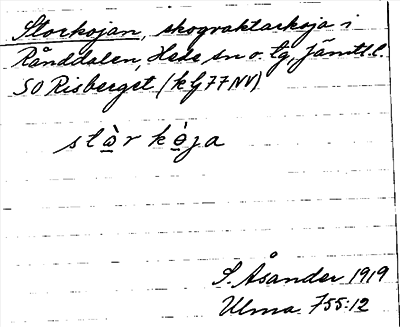 Storkojan, skogvaktarkoja i
Rånddalen, Hede sn o. tg, Jämtl. l.
SO Risberget (k bj 77 NV)
stò̱r kò̱ja
S. Åsander 1919
Ulma 755:12